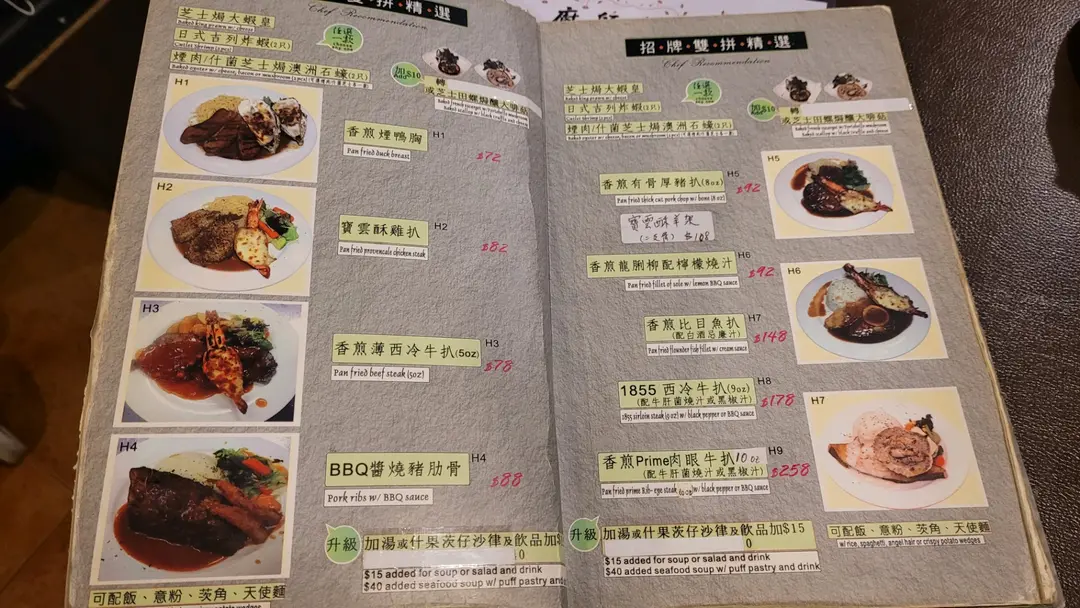 雙拼精選
Chef Recommendation
芝士焗大蝦皇
Baked king prawn w/ cheese
日式吉列炸蝦(2只)
Cutlet shrimp (2 pcs)
煙肉/什菌芝士焗澳洲石蠔(2只)
任選一款
加$10
轉
或芝士田螺焗釀大蘑菇
H1
香煎煙鴨胸 H1
Pan fried duck breast
$72
H2
寶雲酥雞扒 H2
Pan fried provencale chicken steak
$82
H3
香煎薄西冷牛扒(5oz) H3
Pan fried beef steak (5oz)
$78
H4
BBQ醬燒豬肋骨 H4
Pork ribs w/ BBQ sauce
$88
升級
加湯或什果茨仔沙律及飲品加$
0
$15 added for soup or salad and drink
$40 added seafood soup w/ puff pastry and
可配飯、意粉、茨角、天使麵
招牌雙拼精選
Chef Recommendation
芝士焗大蝦皇
Baked king prawn w/ cheese
日式吉列炸蝦(2只)
Cutlet shrimp (2 pcs)
煙肉/什菌芝士焗澳洲石蠔(2只)
任選一款
加$10
轉
或芝士田螺焗釀大蘑菇
H5
香煎有骨厚豬扒(8oz) H5
Pan fried thick cut pork chop w/ bone (8 oz)
$92
寶雲酥羊架
$108
香煎龍脷柳配檸檬燒汁 H6
Pan fried fillet of sole w/ lemon BBQ sauce
$92
H6
香煎比目魚扒 H7
(配白酒忌廉汁)
Pan fried flounder fish fillet w/ cream sauce
$148
1855 西冷牛扒(9oz) H8
(配牛肝菌燒汁或黑椒汁)
1855 sirloin steak (9 oz) w/ black pepper or BBQ sauce
$178
H7
香煎Prime肉眼牛扒10oz H9
(配牛肝菌燒汁或黑椒汁)
Pan fried prime Rib-eye steak (10 oz) w/ black pepper or BBQ sauce
$258
升級
加湯或什果茨仔沙律及飲品加$15
0
$15 added for soup or salad and drink
$40 added seafood soup w/ puff pastry and drink
可配飯、意粉、茨角、天使麵
w/ rice, spaghetti, angel hair or crispy potato wedges